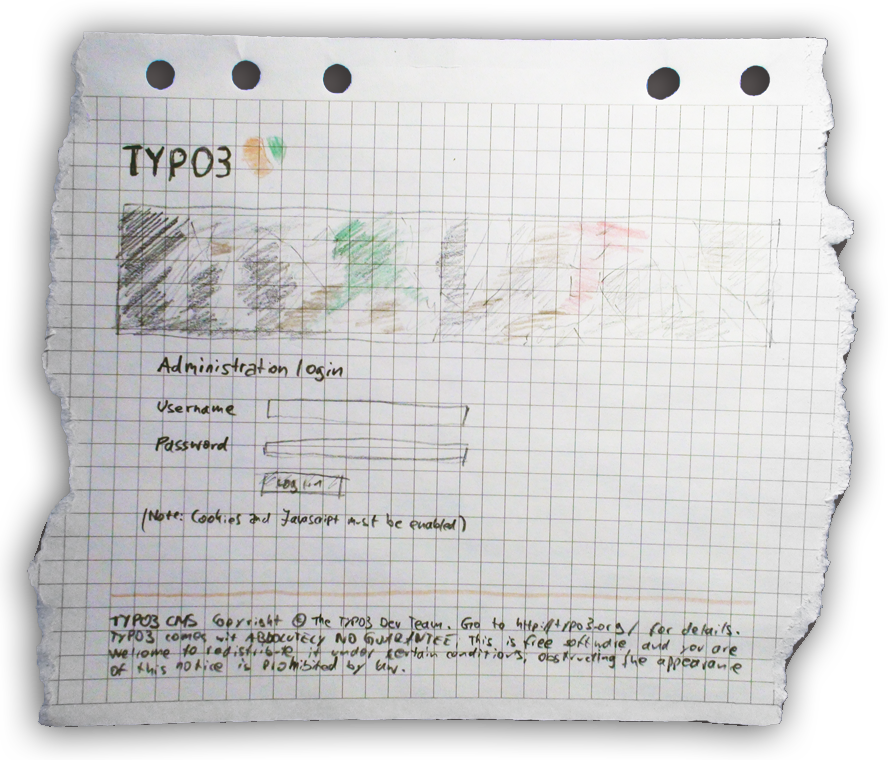 TYPO3
Administration login
Username
Password
Log in
(Note: Cookies and Javascript must be enabled)
TYPO3 CMS Copyright © The TYPO3 Dev Team. Go to http://typo3.org/ for details.
TYPO3 comes wit ABSOLUTELY NO GUARANTEE; This is free software, and you are
welcome to redistribute it under certain conditions; obstructing the appearance
of this notice is prohibited by law.